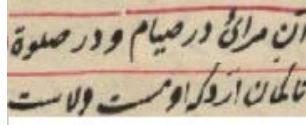 آن مرائی در صیام و در صلوة
تا گمان آرد که او مست ولاست